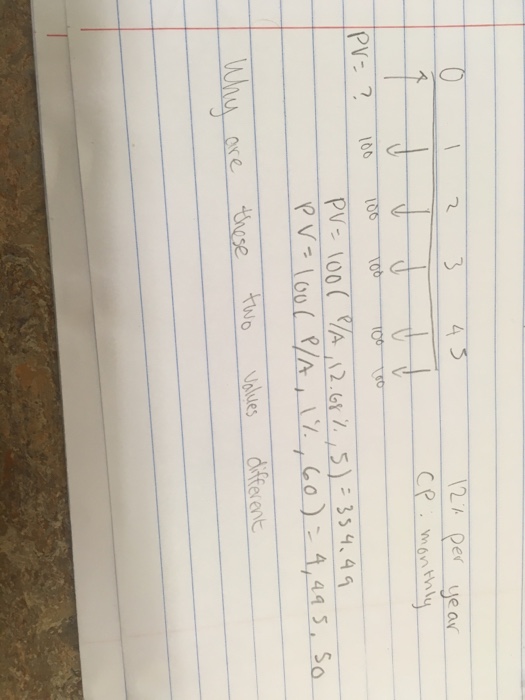 0 1 2 3 4 5 12% per year
CP: monthly
100 100 100 100 100
PV = ?
PV = 100( P/A, 12.68%, 5) = 354.49
PV = 100( P/A, 1%, 60) = 4,495.50
Why are these two values different